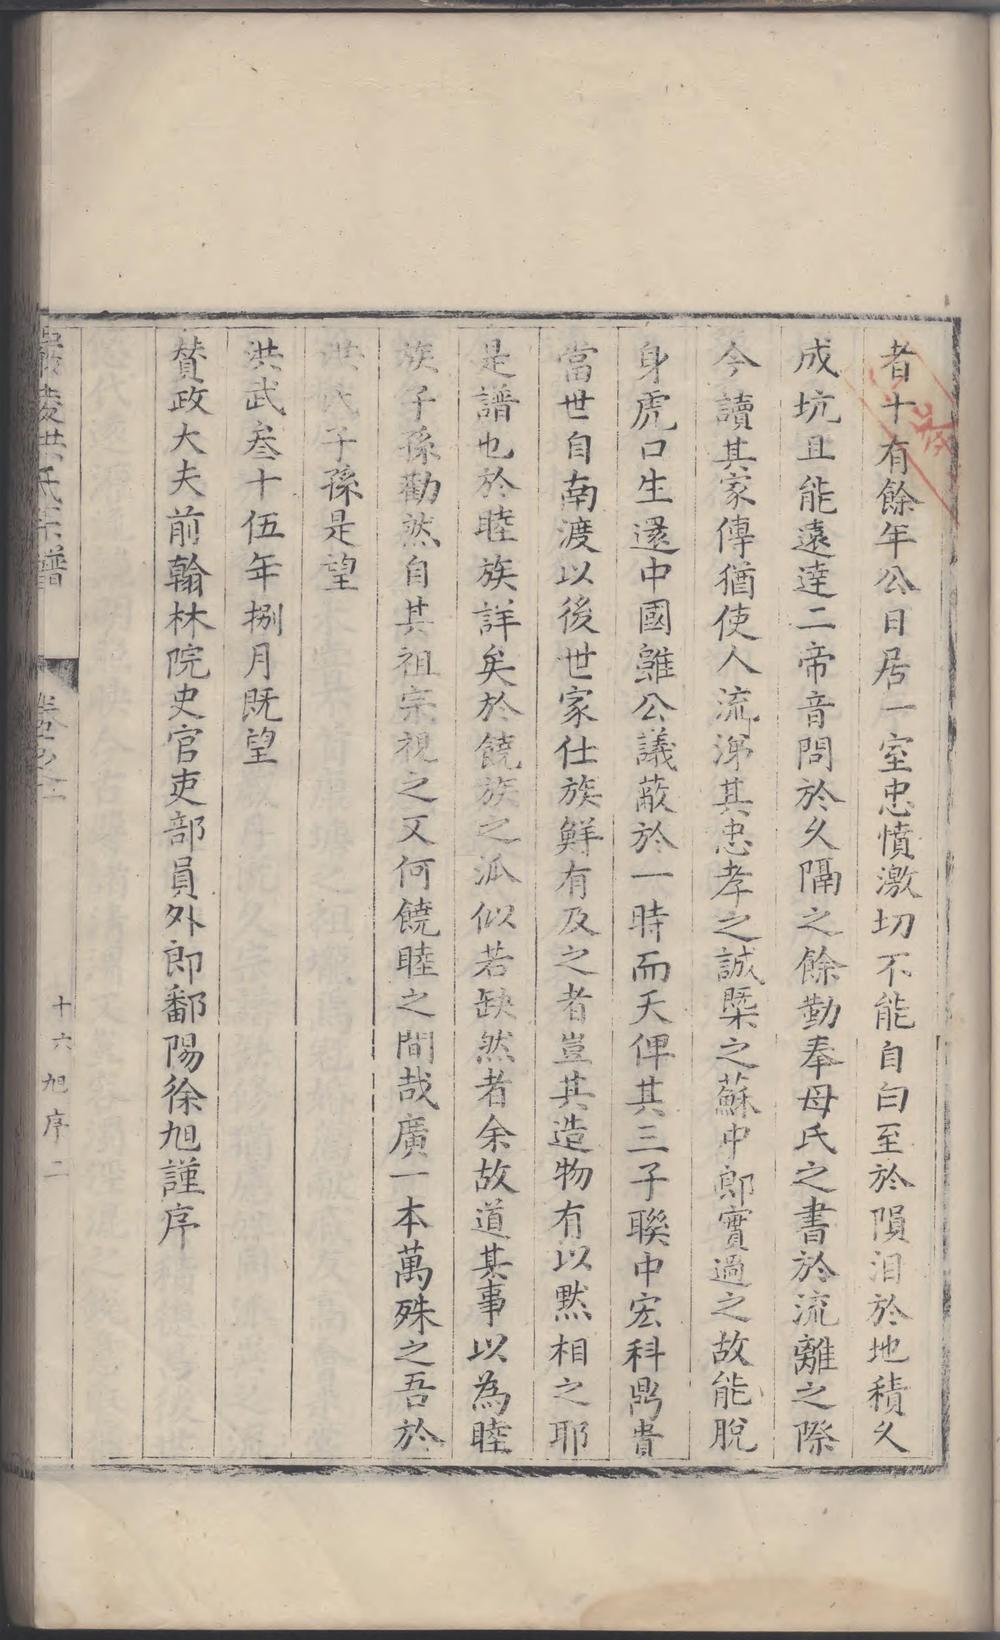 者十有餘年公日居一室忠憤激切不能自白至於隕泪於地積久
成坑且能遠達二帝音問於久隔之餘勤奉母氏之書於流離之際
今讀其家傳猶使人流涕其忠孝之誠槩之蘇中郎實過之故能脫
身虎口生還中國雖公議蔽於一時而天俾其三子聯中宏科鼎貴
當世自南渡以後世家仕族鮮有及之者豈其造物有以黙相之耶
是譜也於睦族詳矣於饒族之派似若缺然者余故道其事以為睦
族子孫勸然自其祖宗視之又何饒睦之間哉廣一本萬殊之吾於
洪氏子孫是望
洪武叁十伍年捌月既望
賛政大夫前翰林院史官吏部員外郎鄱陽徐旭謹序
陵洪氏宗譜
卷之一
十六旭序二